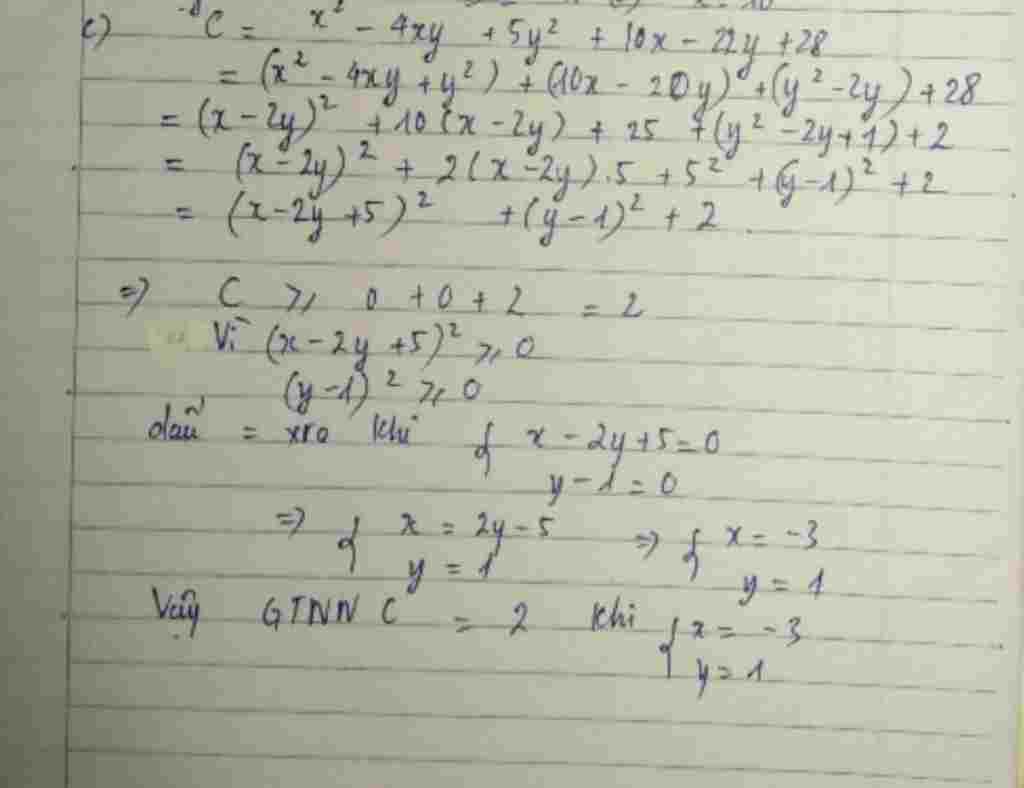 c) C = x² - 4xy + 5y² + 10x - 22y + 28
= (x² - 4xy + y²) + (10x - 20y) + (y² - 2y) + 28
= (x - 2y)² + 10(x - 2y) + 25 + (y² - 2y + 1) + 2
= (x - 2y)² + 2(x - 2y).5 + 5² + (y - 1)² + 2
= (x - 2y + 5)² + (y - 1)² + 2
=> C ≥ 0 + 0 + 2 = 2
Vì (x - 2y + 5)² ≥ 0
(y - 1)² ≥ 0
dấu = xra khi { x - 2y + 5 = 0
y - 1 = 0
=> { x = 2y - 5 => { x = -3
y = 1 y = 1
Vậy GTNN C = 2 khi { x = -3
y = 1